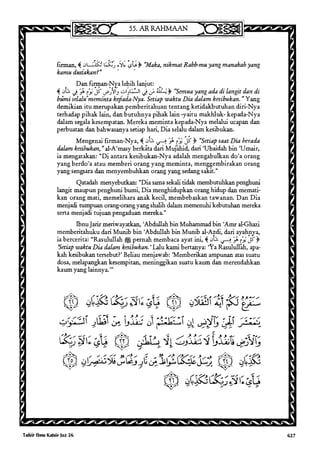 55. AR RAHMAAN
firman, ﴾ فَبِأَيِّ آلَاءِ رَبِّكُمَا تُكَذِّبَانِ ﴿ "Maka, nikmat Rabb-mu yang manakah yang
kamu dustakan?"
Dan firman-Nya lebih lanjut:
﴾ يَسْأَلُهُ مَن فِي السَّمَاوَاتِ وَالْأَرْضِ كُلَّ يَوْمٍ هُوَ فِي شَأْنٍ ﴿ "Semua yang ada di langit dan di
bumi selalu meminta kepada-Nya. Setiap waktu Dia dalam kesibukan." Yang
demikian itu merupakan pemberitahuan tentang ketidakbutuhan diri-Nya
terhadap pihak lain, dan butuhnya pihak lain -yaitu makhluk- kepada-Nya
dalam segala kesempatan. Mereka meminta kepada-Nya melalui ucapan dan
perbuatan dan bahwasanya setiap hari, Dia selalu dalam kesibukan.
Mengenai firman-Nya, ﴾ كُلَّ يَوْمٍ هُوَ فِي شَأْنٍ ﴿ "Setiap saat Dia berada
dalam kesibukan," al-A'masy berkata dari Mujahid, dari 'Ubaidah bin 'Umair,
ia mengatakan: "Di antara kesibukan-Nya adalah mengabulkan do'a orang
yang berdo'a atau memberi orang yang meminta, menggembirakan orang
yang sengsara dan menyembuhkan orang yang sedang sakit."
Qatadah menyebutkan: "Dia sama sekali tidak membutuhkan penghuni
langit maupun penghuni bumi, Dia menghidupkan orang hidup dan memati-
kan orang mati, memelihara anak kecil, membebaskan tawanan. Dan Dia
menjadi tumpuan orang-orang yang shalih dalam memenuhi kebutuhan mereka
serta menjadi tujuan pengaduan mereka."
Ibnu Jarir meriwayatkan, 'Abdullah bin Muhammad bin 'Amr al-Ghazi
memberitahuku dari Munib bin 'Abdullah bin Munib al-Azdi, dari ayahnya,
ia bercerita: "Rasulullah ﷺ pernah membaca ayat ini, ﴾ كُلَّ يَوْمٍ هُوَ فِي شَأْنٍ ﴿
'Setiap waktu Dia dalam kesibukan.' Lalu kami bertanya: 'Ya Rasulullah, apa-
kah kesibukan tersebut?' Beliau menjawab: 'Memberikan ampunan atas suatu
dosa, melapangkan kesempitan, meninggikan suatu kaum dan merendahkan
kaum yang lainnya.'"
سَنَفْرُغُ لَكُمْ أَيُّهَ الثَّقَلَانِ ﴿٣١﴾ فَبِأَيِّ آلَاءِ رَبِّكُمَا تُكَذِّبَانِ ﴿٣٢﴾
يَا مَعْشَرَ الْجِنِّ وَالْإِنسِ إِنِ اسْتَطَعْتُمْ أَن تَنفُذُوا مِنْ أَقْطَارِ السَّمَاوَاتِ
وَالْأَرْضِ فَانفُذُوا لَا تَنفُذُونَ إِلَّا بِسُلْطَانٍ ﴿٣٣﴾ فَبِأَيِّ آلَاءِ رَبِّكُمَا
تُكَذِّبَانِ ﴿٣٤﴾ يُرْسَلُ عَلَيْكُمَا شُوَاظٌ مِّن نَّارٍ وَنُحَاسٌ فَلَا تَنتَصِرَانِ ﴿٣٥﴾
فَبِأَيِّ آلَاءِ رَبِّكُمَا تُكَذِّبَانِ ﴿٣٦﴾
Tafsir Ibnu Katsir Juz 26
627